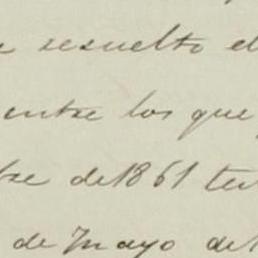 resuelto el
entre los que
de 1861
de Mayo de